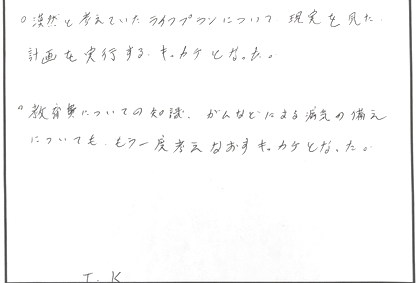 ○漠然と考えていたライフプランについて 現実を見た.
計画を実行する.キッカケとなった。
○教育費についての知識、がんなどによる病気の備え
についても、もう一度考えなおすキッカケとなった。
T. K